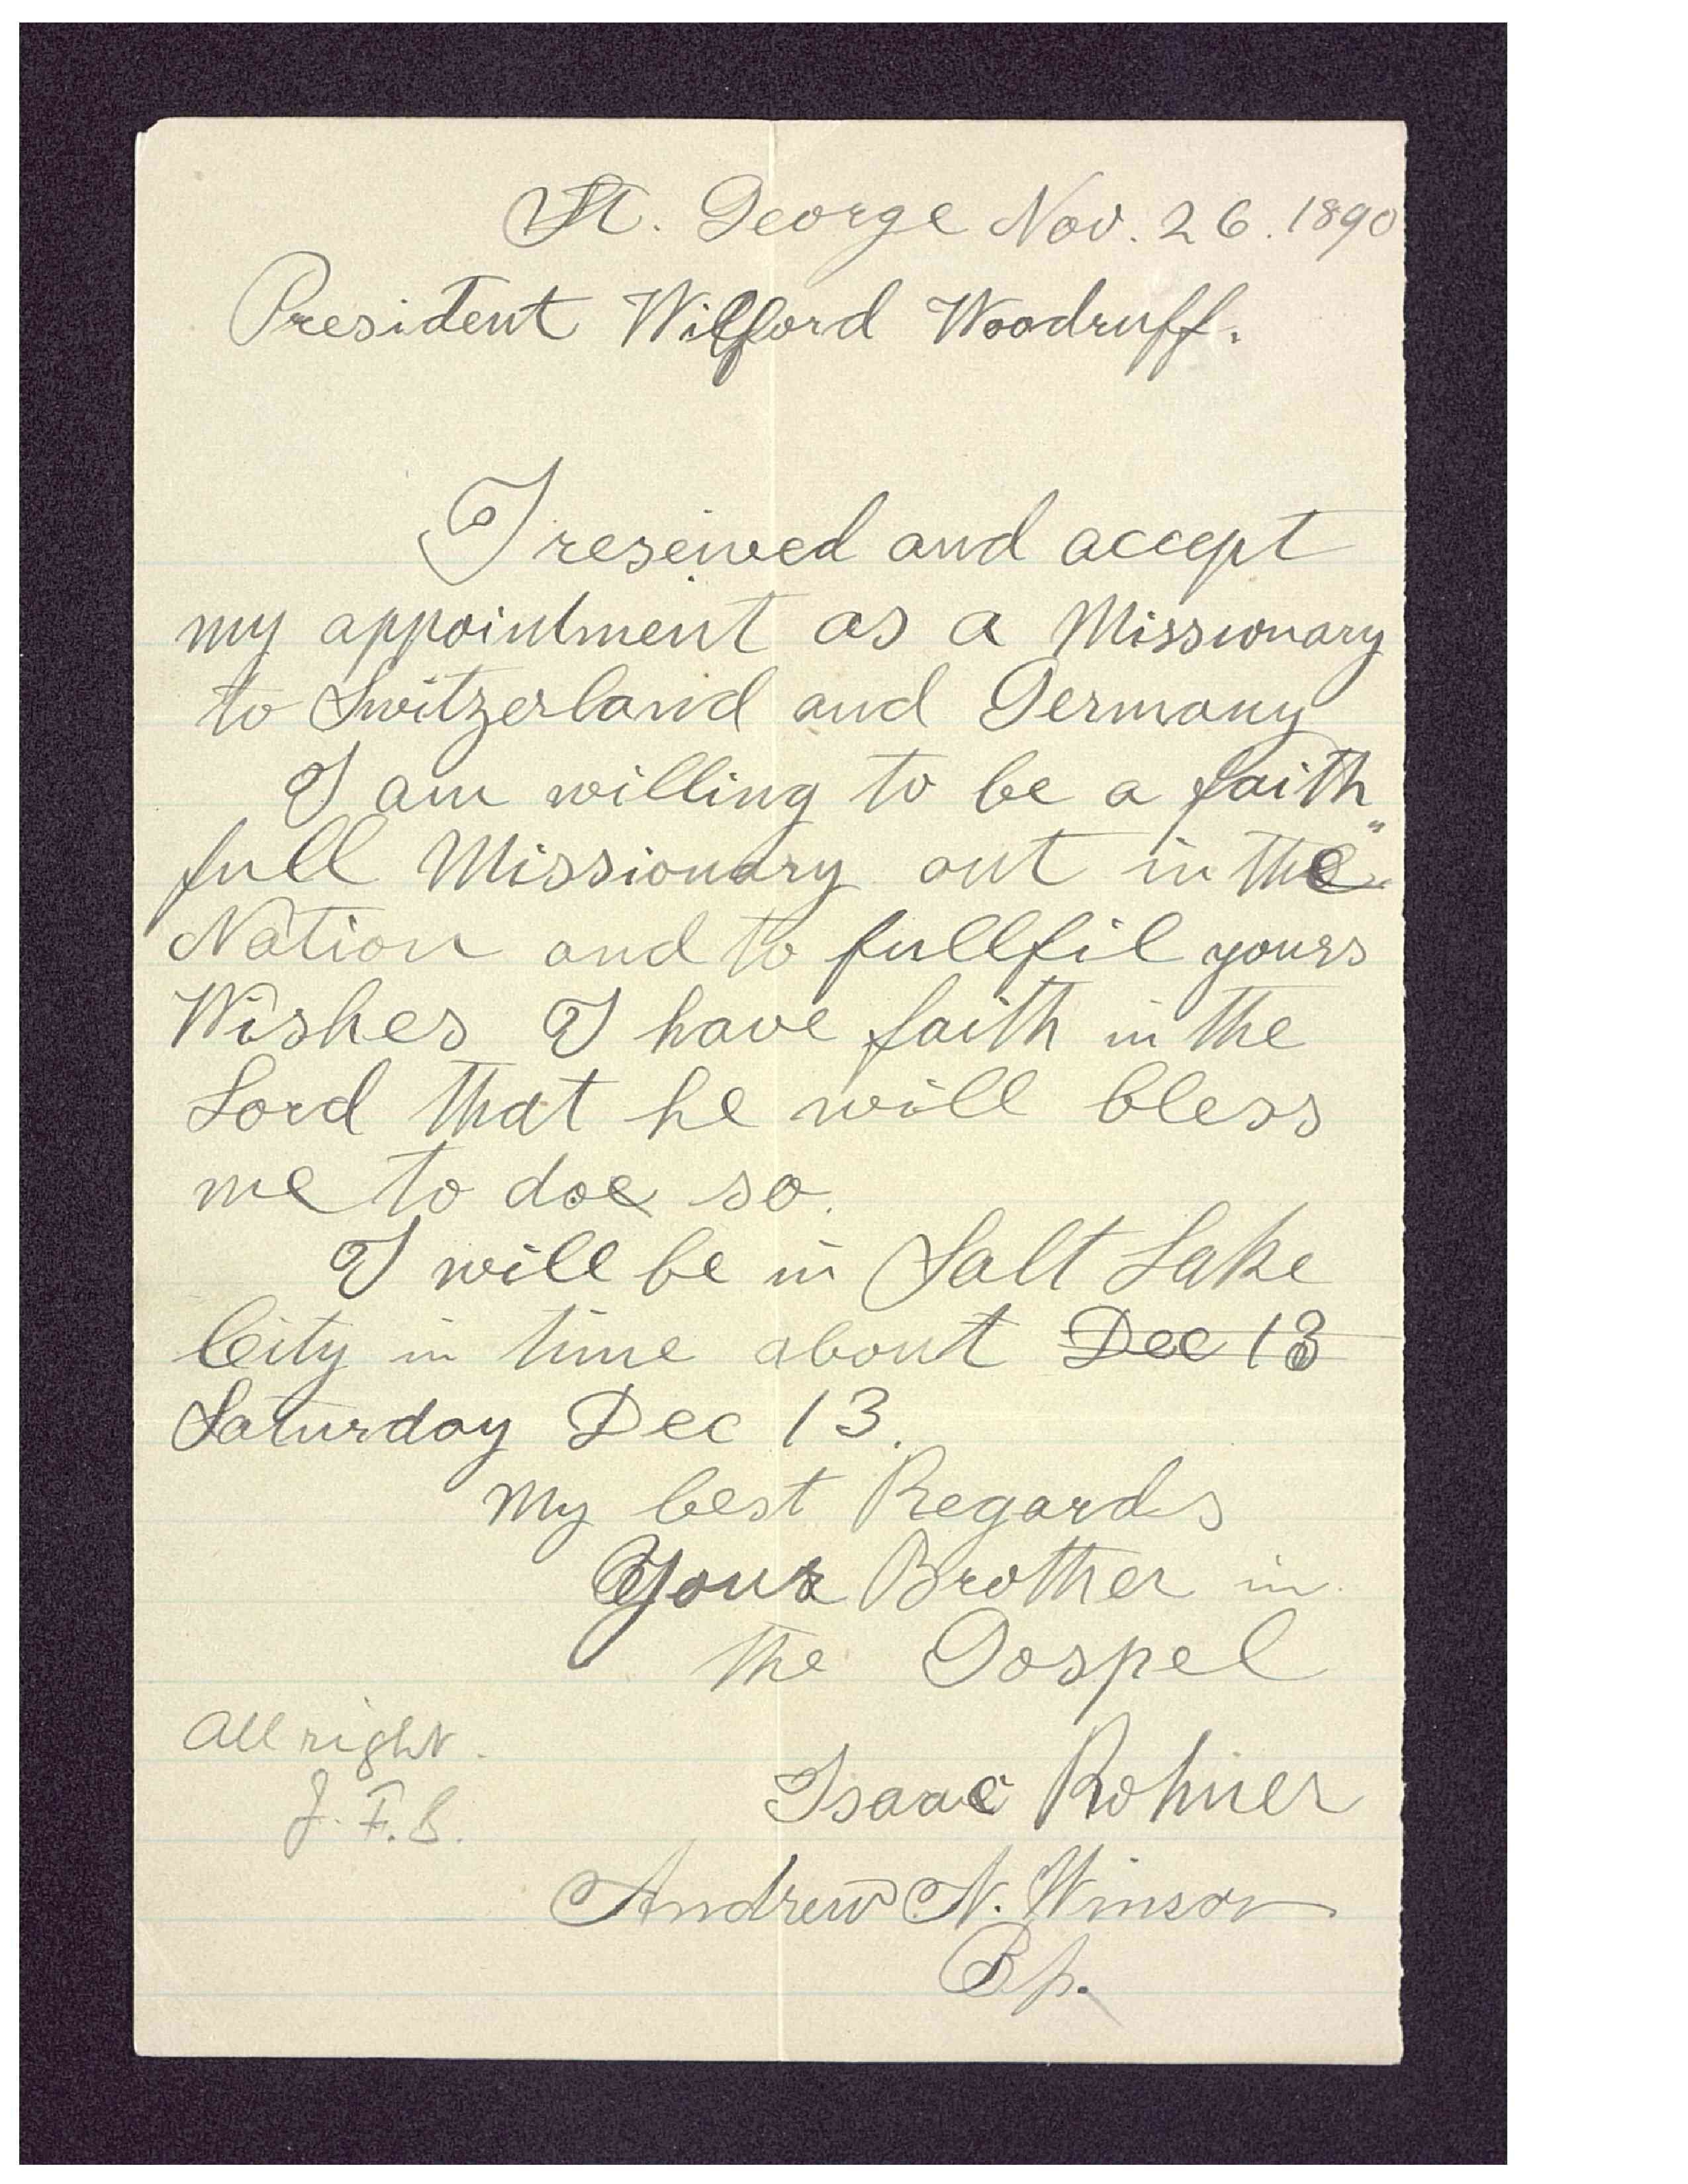 St. George Nov. 26. 1890
President Wilford Woodruff.
I reseived and accept
my appointment as a Missionary
to Switzerland and Germany
I am willing to be a faith„
full Missionary out in the
Nation and to fullfil yours
Wishes I have faith in the
Lord that he will bless
me to doe so.
I will be in Salt Lake
City in time about Dec 13
Saturday Dec 13.
My best Regards
Your Brother in
the Gospel
All right.
J. F. S.
Isaac Rohner
Andrew N. Winsor
Bp.